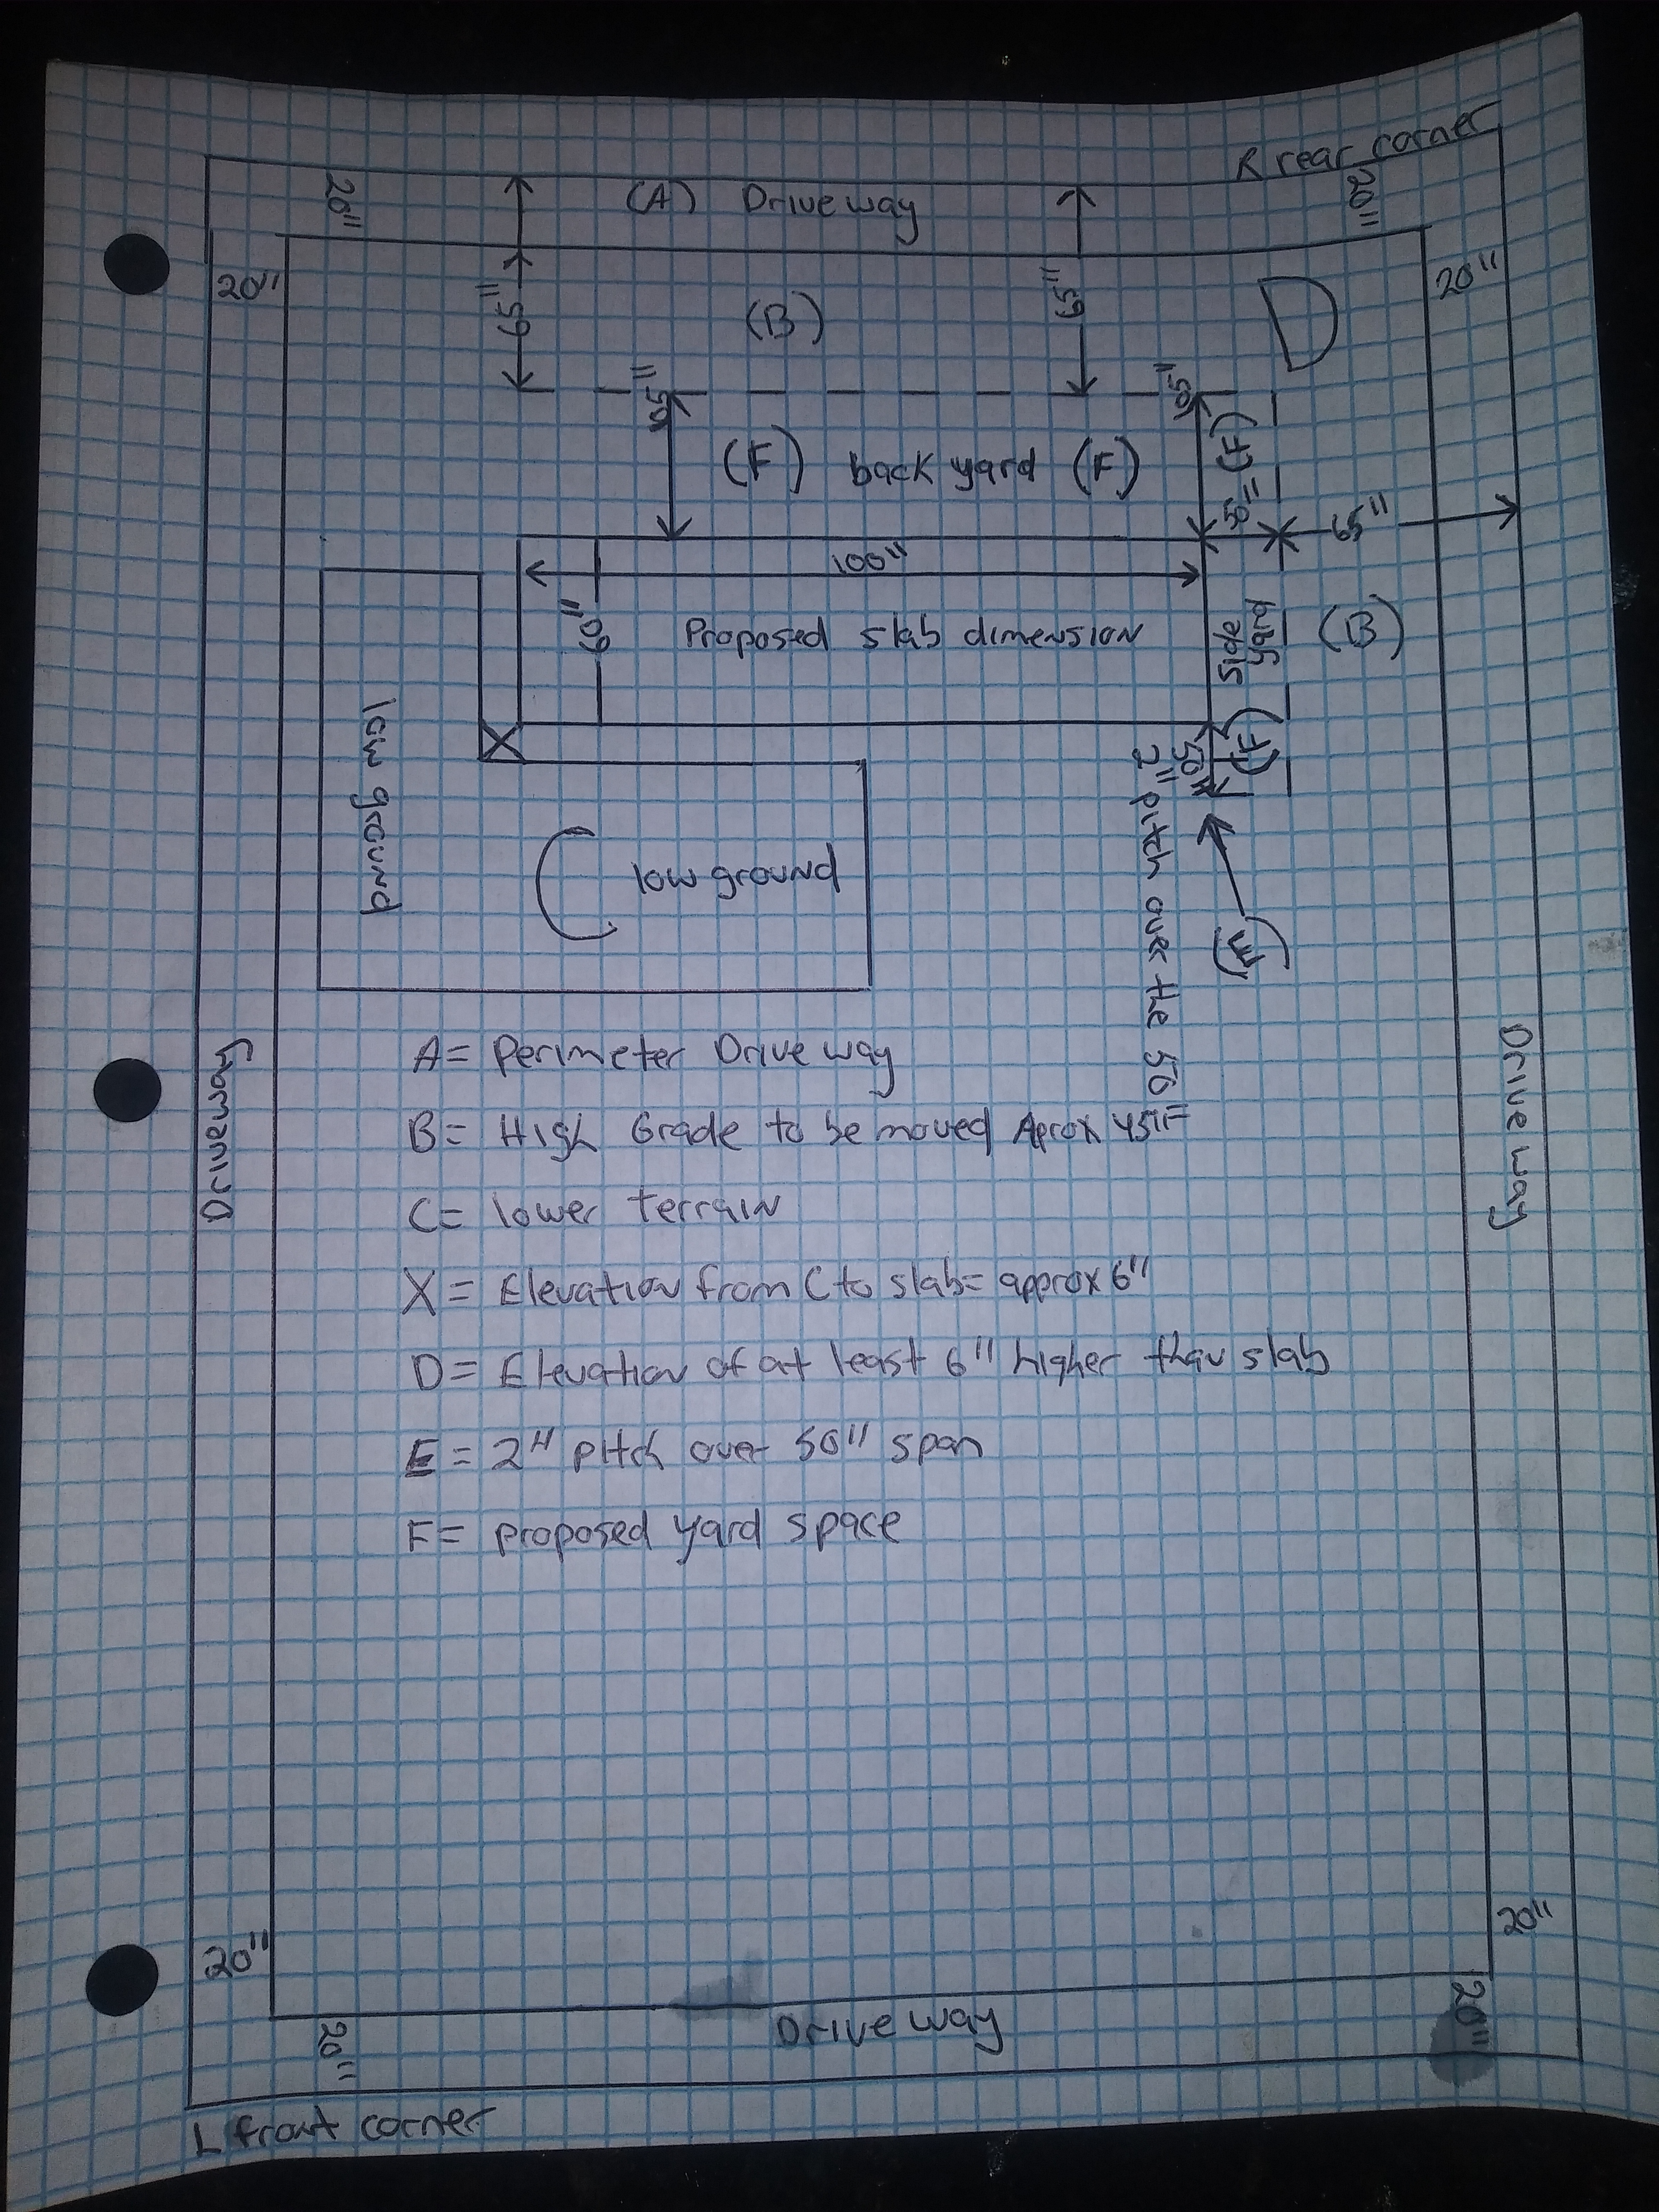 R rear corner
20"
(A) Driveway
20"
20"
20"
65"
(B)
65"
D
50"
50"
(F) back yard (F)
(F)
50"
65"
100"
60"
Proposed slab dimension
Side yard
(B)
X
(F)
50"
2" pitch over the 50"
low ground
C low ground
(E)
A = Perimeter Driveway
B = High Grade to be moved Aprox
C = lower terrain
X = Elevation from C to slab = approx 6"
D = Elevation of at least 6" higher than slab
E = 2" pitch over 50" span
F = proposed yard space
Driveway
Driveway
20"
20"
20"
Driveway
20"
L front corner